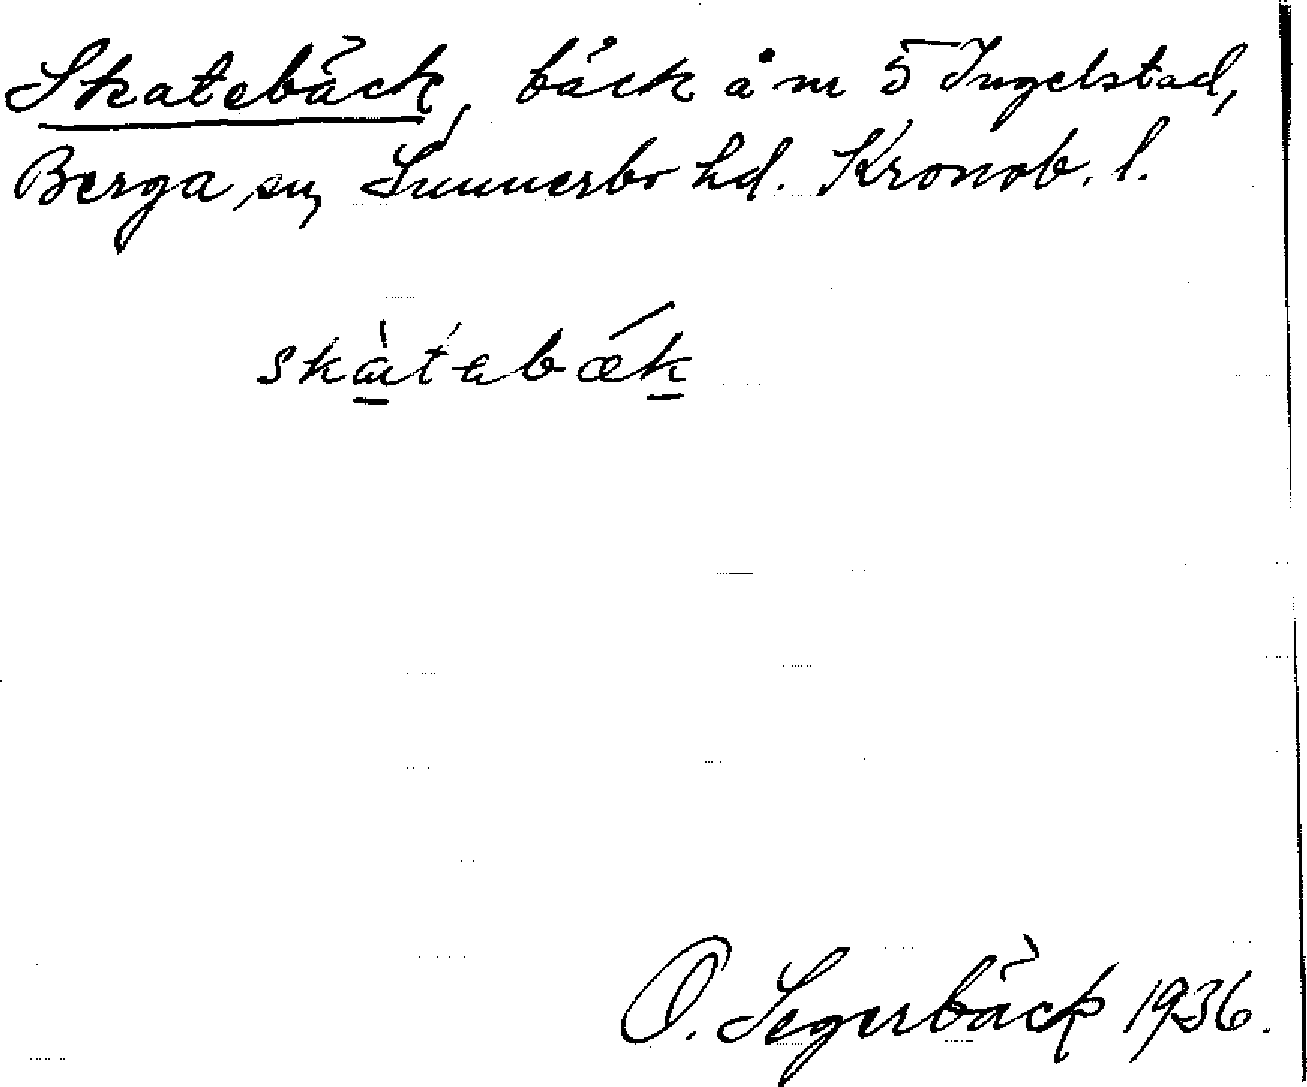 Skatebäck, bäck å m 5 Ingelstad,
Berga sn, Sunnerbo hd. Kronob. l.
skàtabǽk
O. Segerbäck 1936.